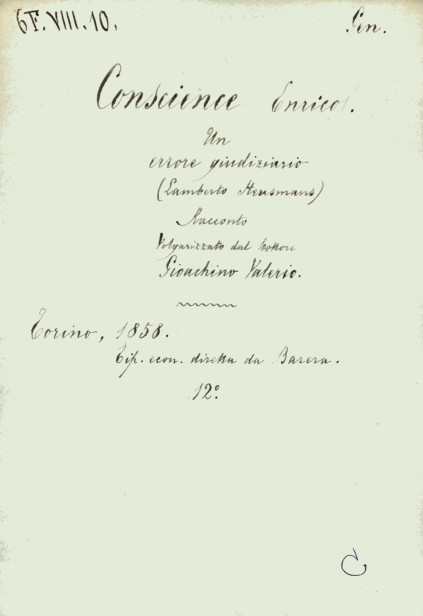 6F.VIII.10.
Gen.
Conscience Enrico.
Un
errore giudiziario
(Lamberto Hensmans)
Racconto
Volgarizzato dal Dottore
Gioachino Valerio.
Torino, 1858.
Tip. econ. diretta da Barera.
12°
C